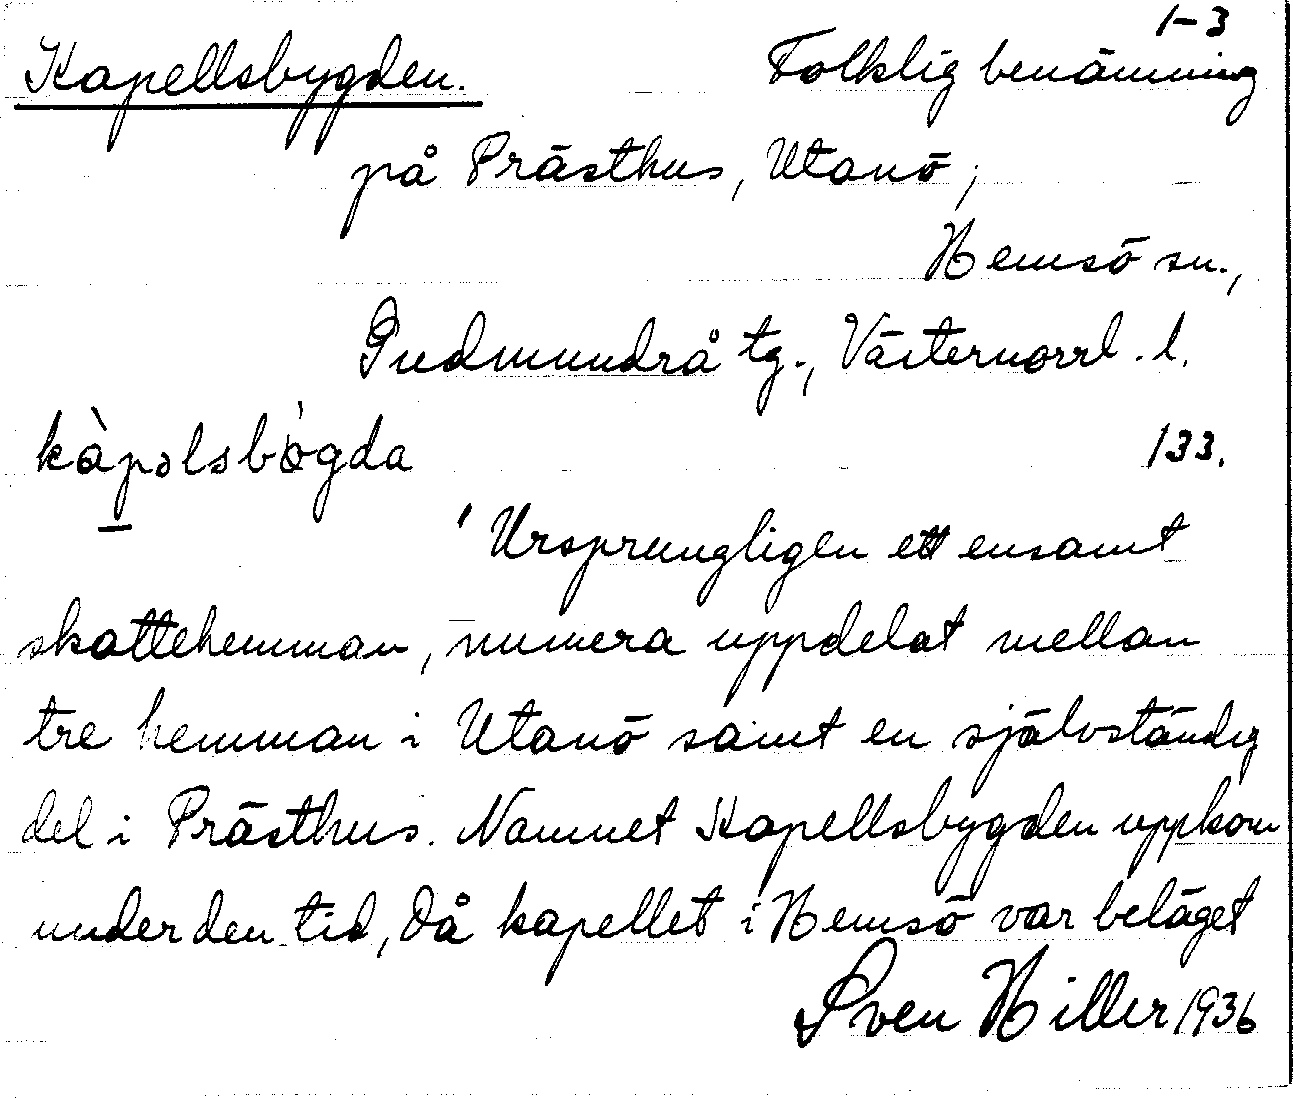 1-3
Kapellsbygden. Folklig benämning
på Prästhus, Utanö,
Hemsö sn.,
Gudmundrå tg., Västernorrl. l.
kàpəlsbògda 133.
' Ursprungligen ett ensamt
skattehemman, numera uppdelat mellan
tre hemman i Utanö samt en självständig
del i Prästhus. Namnet Kapellsbygden uppkom
under den tid, då kapellet i Hemsö var beläget
Sven Hiller 1936